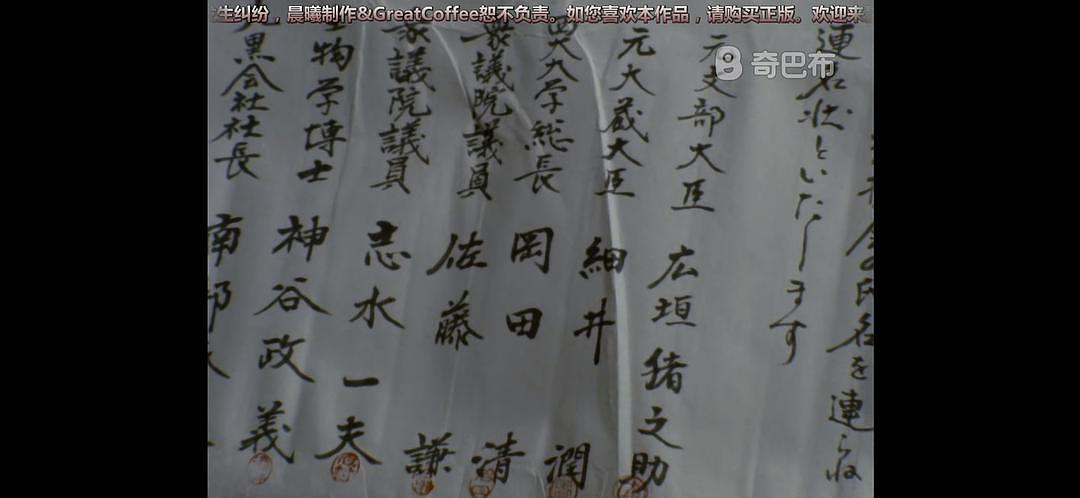 生纠纷，晨曦制作&GreatCoffee恕不负责。如您喜欢本作品，请购买正版。欢迎来
奇巴布
氏名を連らね
連名状といたします
元文部大臣 広垣猪之助
元大蔵大臣 細井 潤
大学総長 岡田 清
衆議院議員 佐藤 謙
衆議院議員 志水一夫
生物学博士 神谷政義
黒会社社長 南部